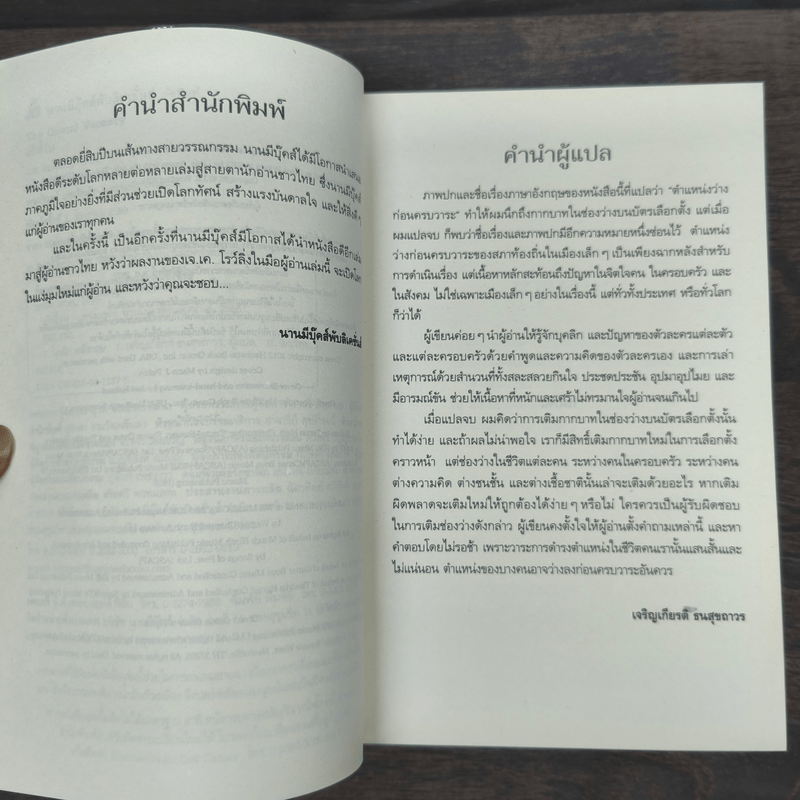 คำนำสำนักพิมพ์
ตลอดยี่สิบปีบนเส้นทางสายวรรณกรรม นานมีบุ๊คส์ได้มีโอกาสนำเสนอ
หนังสือดีระดับโลกหลายต่อหลายเล่มสู่สายตานักอ่านชาวไทย ซึ่งนานมีบุ๊คส์
ภาคภูมิใจอย่างยิ่งที่มีส่วนช่วยเปิดโลกทัศน์ สร้างแรงบันดาลใจ และให้สิ่งดีๆ
แก่ผู้อ่านของเราทุกคน
และในครั้งนี้ เป็นอีกครั้งที่นานมีบุ๊คส์มีโอกาสได้นำหนังสือดีอีกเล่ม
มาสู่ผู้อ่านชาวไทย หวังว่าผลงานของเจ.เค. โรว์ลิ่งในมือผู้อ่านเล่มนี้ จะเปิดโลก
ในแง่มุมใหม่แก่ผู้อ่าน และหวังว่าคุณจะชอบ...
นานมีบุ๊คส์พับลิเคชั่นส์
คำนำผู้แปล
ภาพปกและชื่อเรื่องภาษาอังกฤษของหนังสือนี้ที่แปลว่า "ตำแหน่งว่าง
ก่อนครบวาระ" ทำให้ผมนึกถึงกากบาทในช่องว่างบนบัตรเลือกตั้ง แต่เมื่อ
ผมแปลจบ ก็พบว่าชื่อเรื่องและภาพปกมีอีกความหมายหนึ่งซ่อนไว้ ตำแหน่ง
ว่างก่อนครบวาระของสภาท้องถิ่นในเมืองเล็กๆ เป็นเพียงฉากหลังสำหรับ
การดำเนินเรื่อง แต่เนื้อหาหลักสะท้อนถึงปัญหาในจิตใจคน ในครอบครัว และ
ในสังคม ไม่ใช่เฉพาะเมืองเล็กๆ อย่างในเรื่องนี้ แต่ทั่วทั้งประเทศ หรือทั่วโลก
ก็ว่าได้
ผู้เขียนค่อยๆ นำผู้อ่านให้รู้จักบุคลิก และปัญหาของตัวละครแต่ละตัว
และแต่ละครอบครัวด้วยคำพูดและความคิดของตัวละครเอง และการเล่า
เหตุการณ์ด้วยสำนวนที่ทั้งสละสลวยกินใจ ประชดประชัน อุปมาอุปไมย และ
มีอารมณ์ขัน ช่วยให้เนื้อหาที่หนักและเศร้าไม่ทรมานใจผู้อ่านจนเกินไป
เมื่อแปลจบ ผมคิดว่าการเติมกากบาทในช่องว่างบนบัตรเลือกตั้งนั้น
ทำได้ง่าย และถ้าผลไม่น่าพอใจ เราก็มีสิทธิ์เติมกากบาทใหม่ในการเลือกตั้ง
คราวหน้า แต่ช่องว่างในชีวิตแต่ละคน ระหว่างคนในครอบครัว ระหว่างคน
ต่างความคิด ต่างชนชั้น และต่างเชื้อชาตินั้นเล่าจะเติมด้วยอะไร หากเติม
ผิดพลาดจะเติมใหม่ให้ถูกต้องได้ง่ายๆ หรือไม่ ใครควรเป็นผู้รับผิดชอบ
ในการเติมช่องว่างดังกล่าว ผู้เขียนคงตั้งใจให้ผู้อ่านตั้งคำถามเหล่านี้ และหา
คำตอบโดยไม่รอช้า เพราะวาระการดำรงตำแหน่งในชีวิตคนเรานั้นแสนสั้นและ
ไม่แน่นอน ตำแหน่งของบางคนอาจว่างลงก่อนครบวาระอันควร
เจริญเกียรติ ธนสุขถาวร